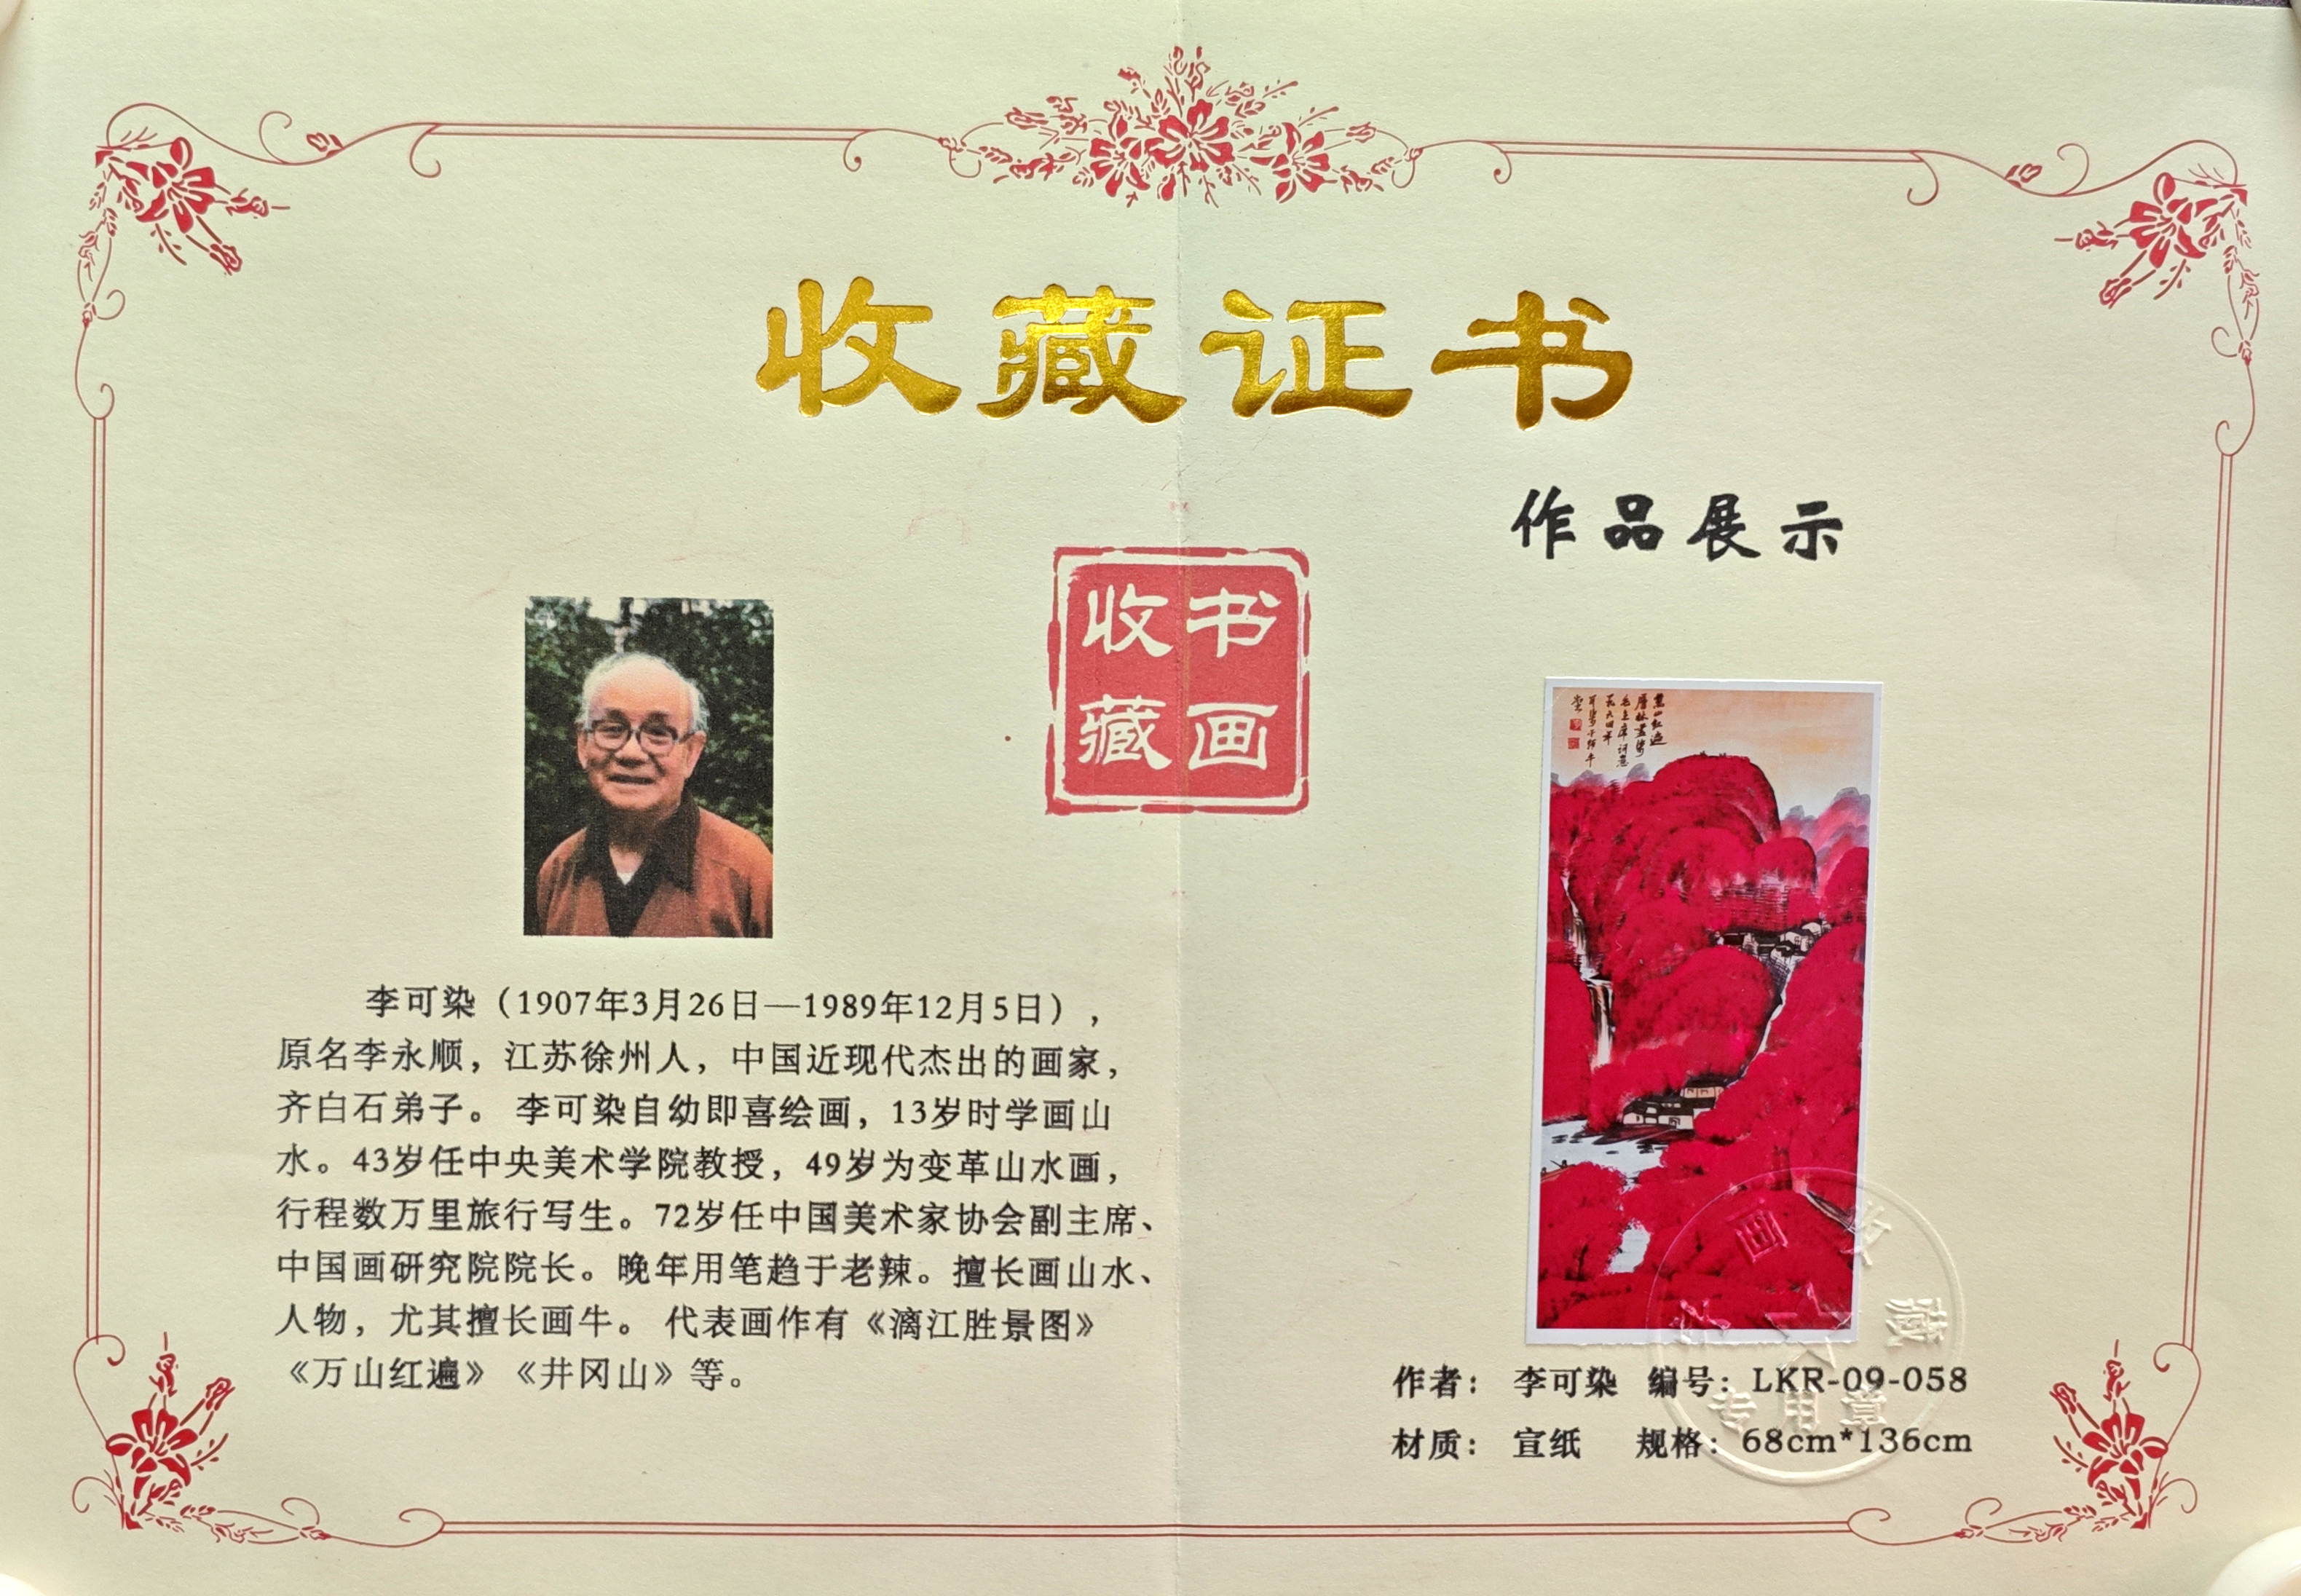 收藏证书
作品展示
书画
收藏
李可染（1907年3月26日—1989年12月5日），
原名李永顺，江苏徐州人，中国近现代杰出的画家，
齐白石弟子。 李可染自幼即喜绘画，13岁时学画山
水。43岁任中央美术学院教授，49岁为变革山水画，
行程数万里旅行写生。72岁任中国美术家协会副主席、
中国画研究院院长。晚年用笔趋于老辣。擅长画山水、
人物，尤其擅长画牛。 代表画作有《漓江胜景图》
《万山红遍》《井冈山》等。
万山红遍
层林尽染
作者： 李可染 编号：LKR-09-058
材质： 宣纸 规格：68cm*136cm
画收藏
专用章